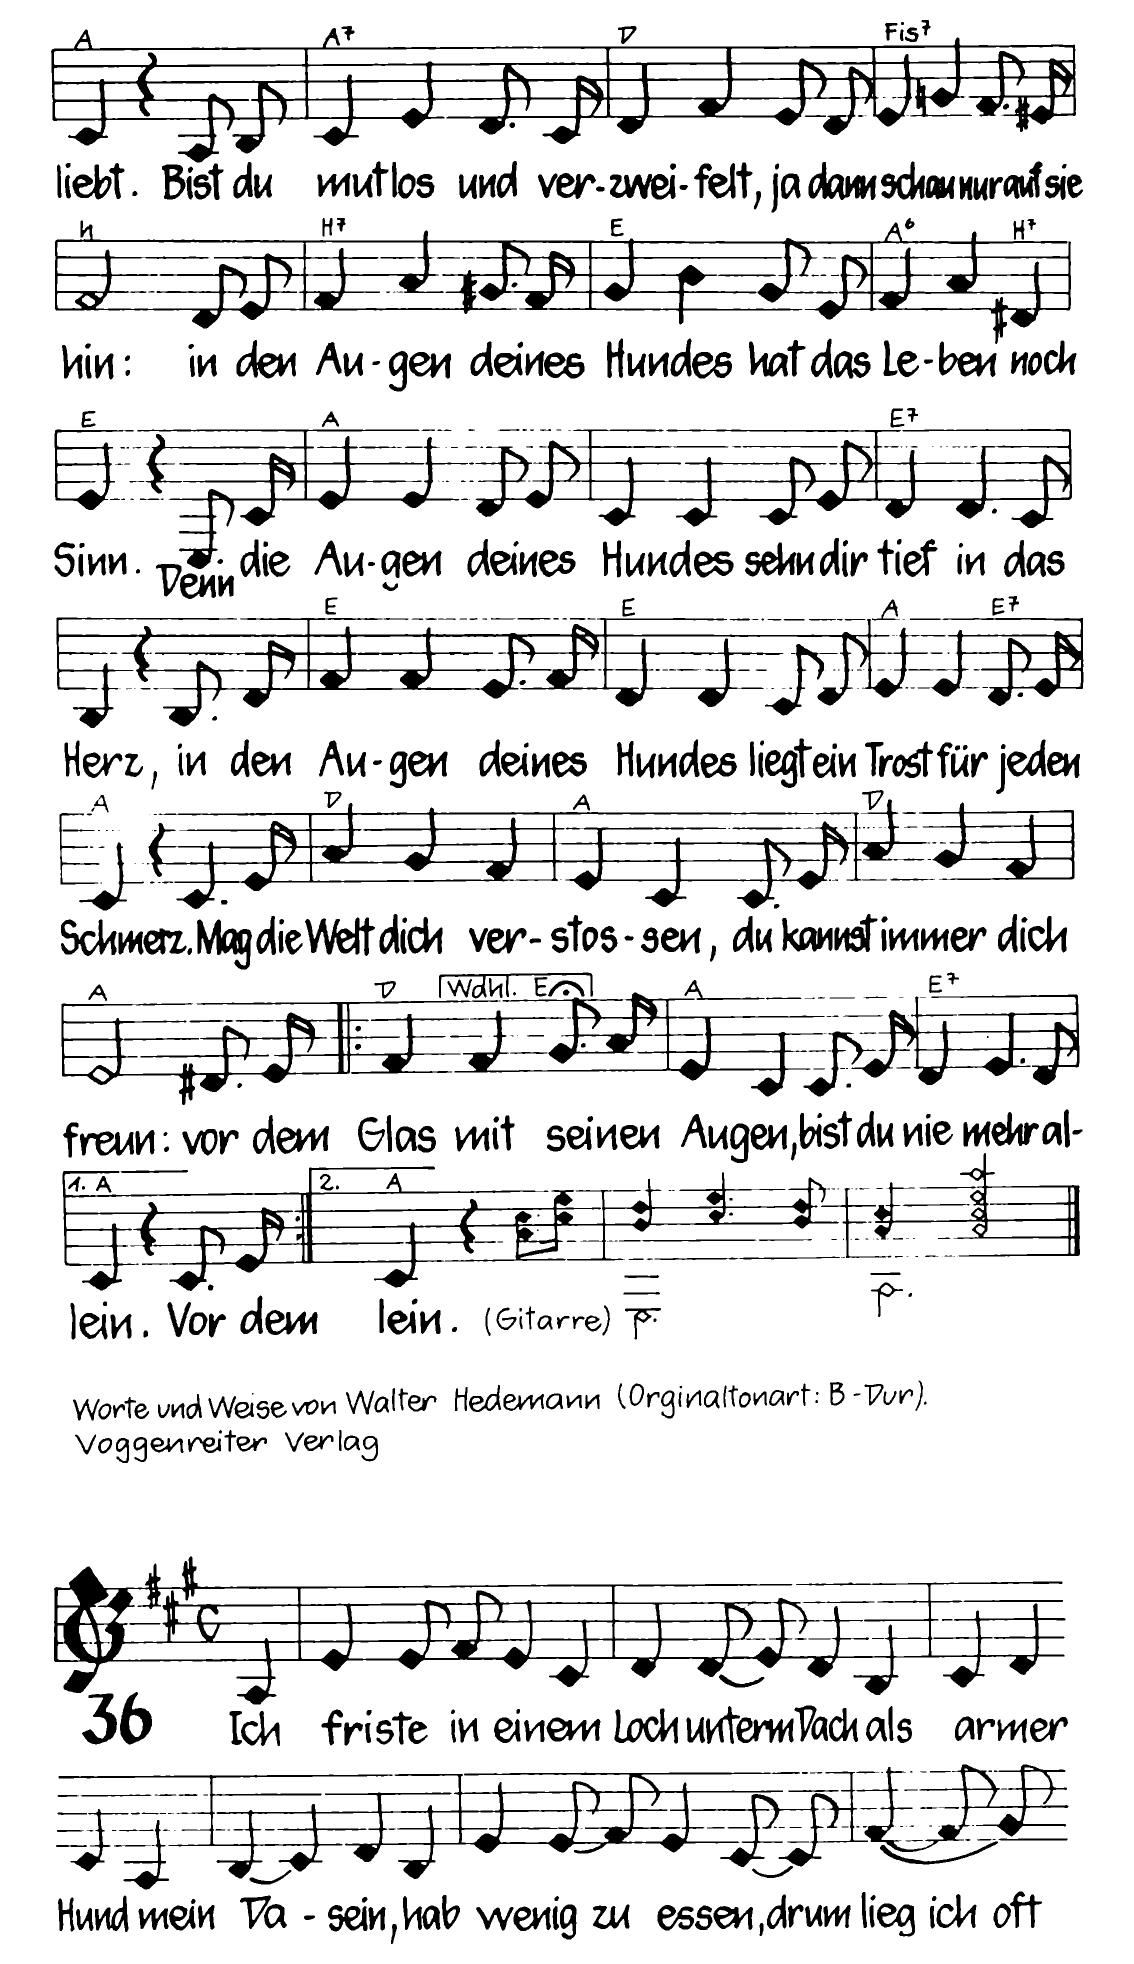 A A7 D Fis7
liebt. Bist du mutlos und ver-zwei-felt, ja dann schau nur auf sie
h H7 E A6 H7
hin: in den Au-gen deines Hundes hat das Le-ben noch
E A E7
Sinn. Denn die Au-gen deines Hundes sehn dir tief in das
E E A E7
Herz, in den Au-gen deines Hundes liegt ein Trost für jeden
A D A D
Schmerz. Mag die Welt dich ver-stos-sen, du kannst immer dich
A D Wdhl. E A E7
freun: vor dem Glas mit seinen Augen, bist du nie mehr al-
1. A 2. A
lein. Vor dem lein. (Gitarre)
Worte und Weise von Walter Hedemann (Orginaltonart: B-Dur).
Voggenreiter Verlag
36
Ich friste in einem Loch unterm Dach als armer
Hund mein Da-sein, hab wenig zu essen, drum lieg ich oft